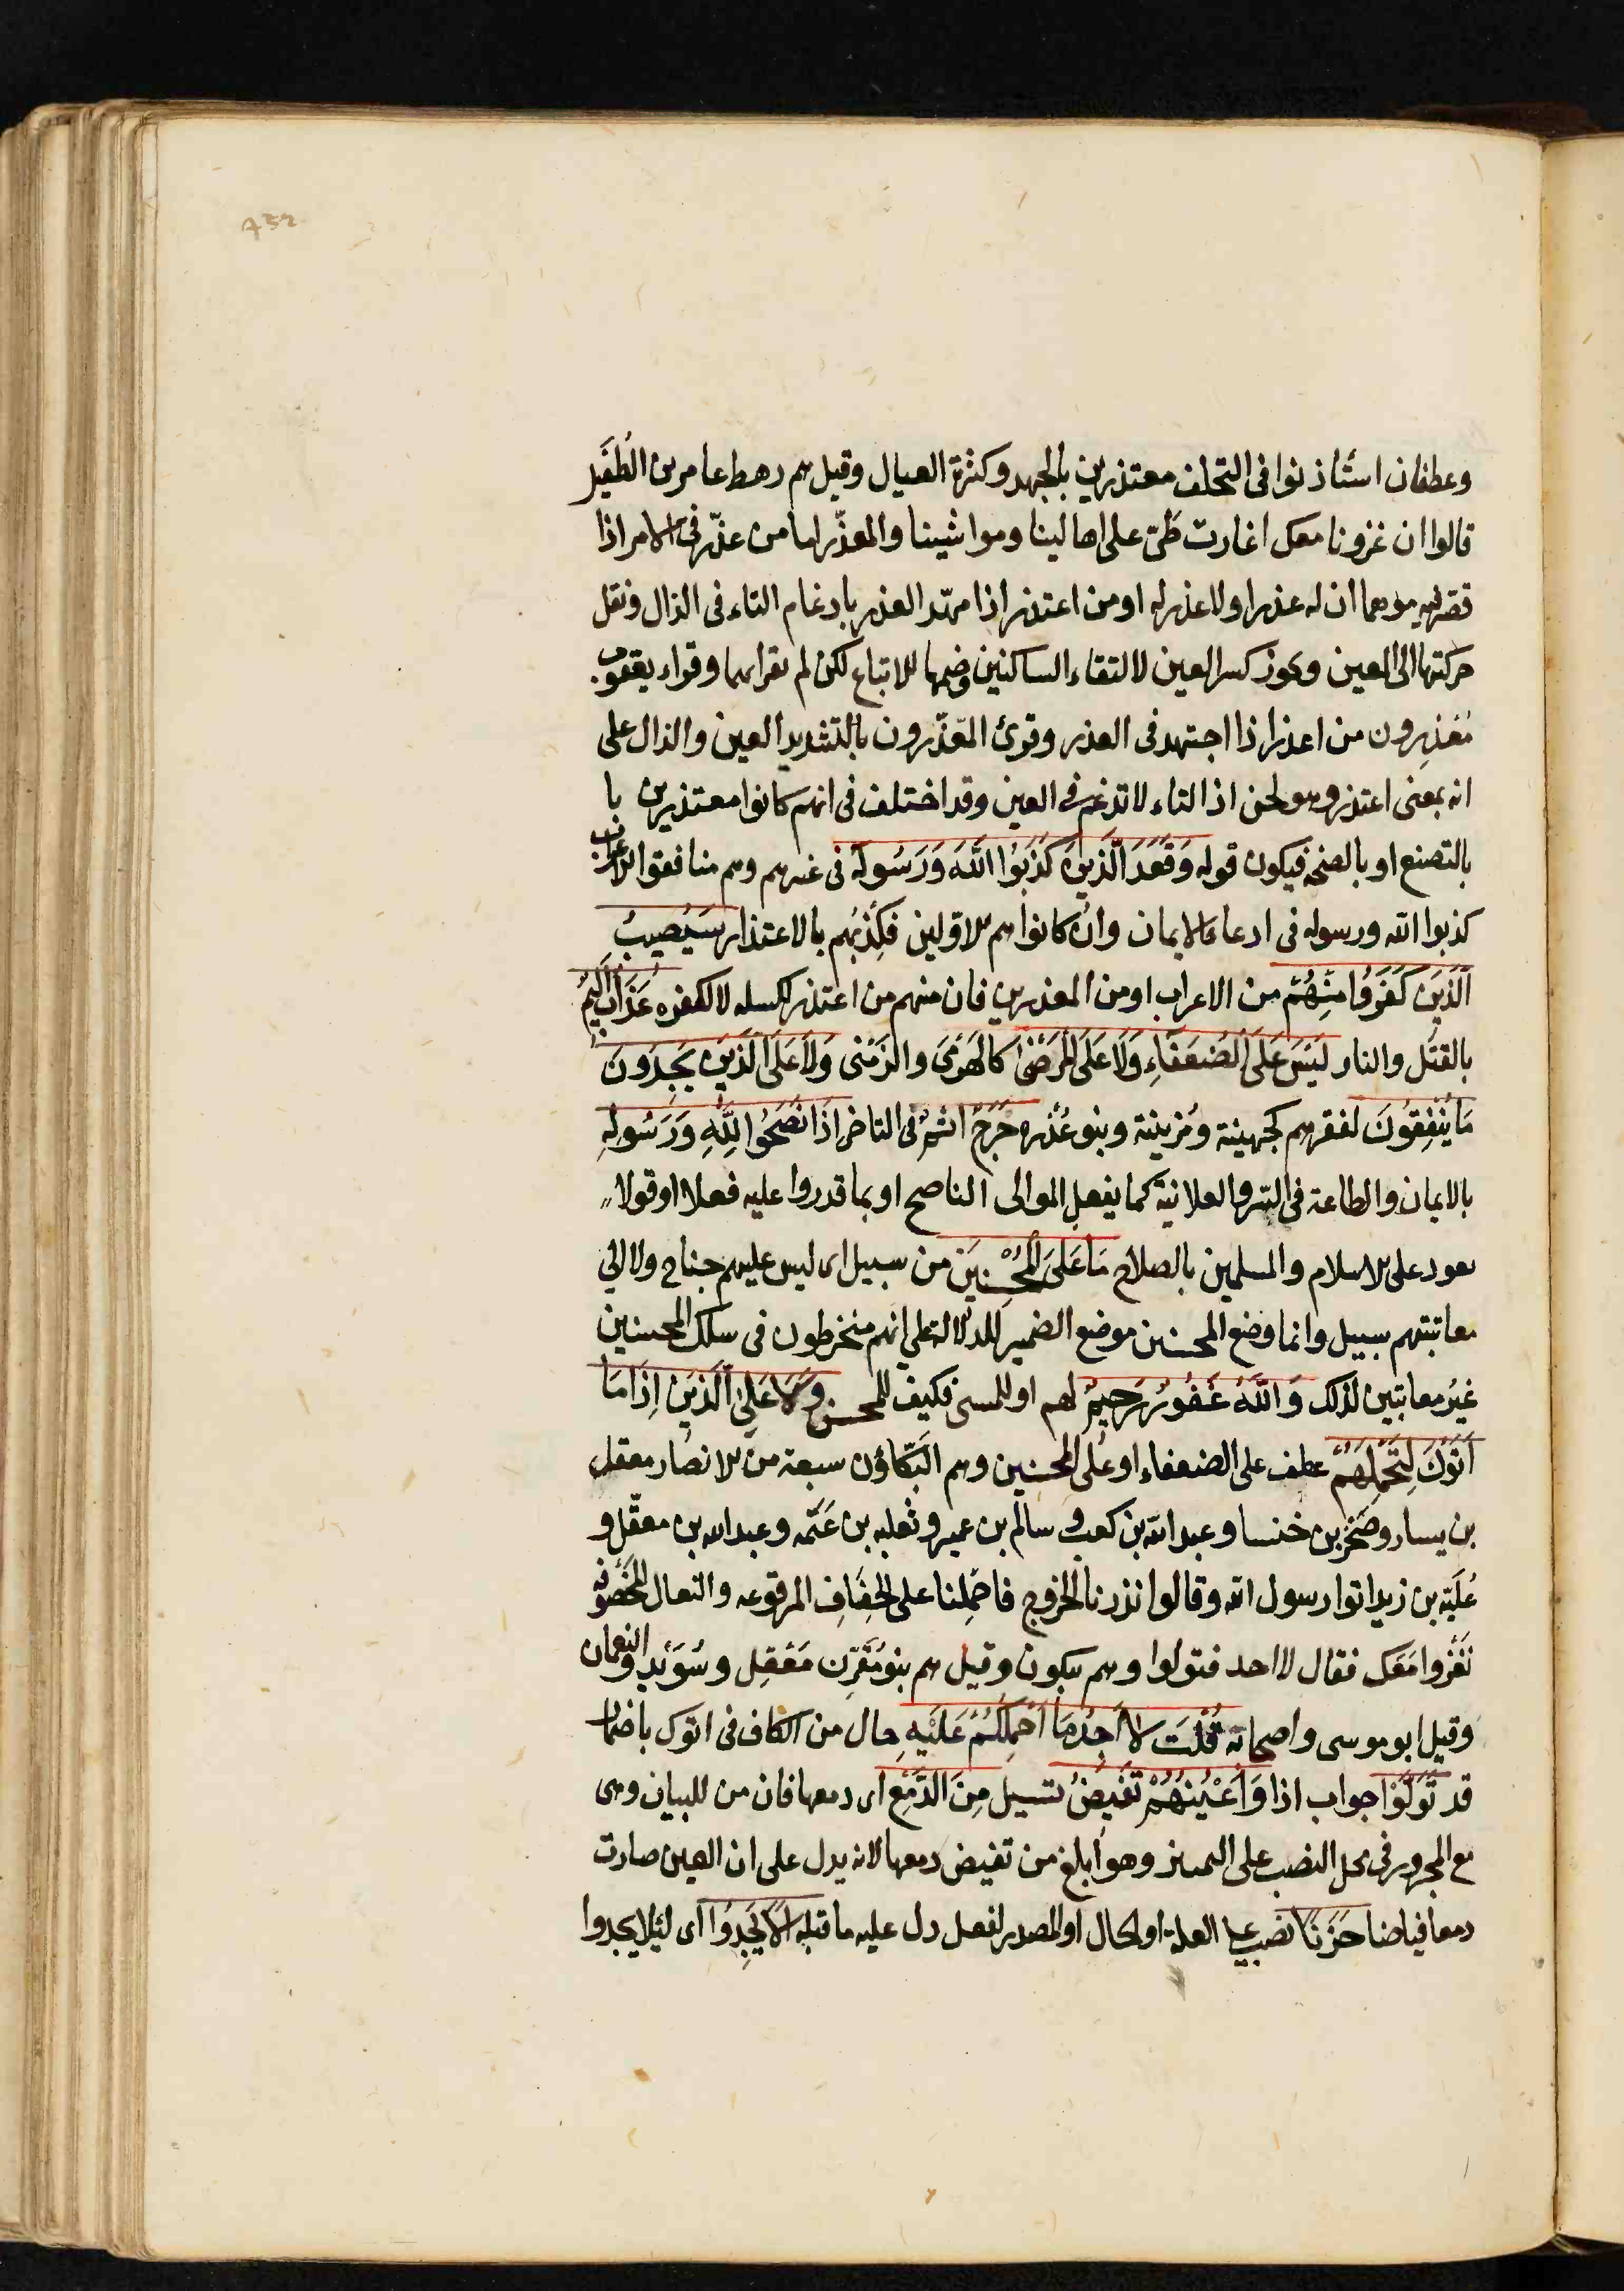 وغطفان استأذنوا فى التخلف معتذرين بالجهد وكثرة العيال وقيل هم رهط عامر بن الطُفَيل
قالوا ان غزونا معك اغارت طىّ على اهالينا ومواشينا والمعذّر اما من عذّر فى الامر اذا
قصّر فيه موهما ان له عذرا ولا عذر له او من اعتذر اذا مهّد العذر بادغام التاء فى الذال ونقل
حركتها الى العين ويجوز كسر العين لالتقاء الساكنين وضمها للاتباع لكن لم يقرا بهما وقراء يعقوب
مُعْذِرون من اعذر اذا اجتهد فى العذر وقرئ المّعّذّرون بالتشديد العين والذال على
انه بمعنى اعتذر وهو لحن اذ التاء لا تدغم فى العين وقد اختلف فى انهم كانوا معتذيرين با
بالتصنع او بالصحة فيكون قوله وَقَعَدَ الَّذِينَ كَذَبُوا اللَّهَ وَرَسُولَهُ فى غيرهم وهم منافقوا الاعراب
كذبوا الله ورسوله فى ادعاء الايمان وان كانوا هم الاولين فكِذبُهم بالاعتذار سَيُصِيبُ
الَّذِينَ كَفَرُوا مِنْهُمْ من الاعراب او من المعذرين فان منهم من اعتذر لكسله لا لكفره عَذَابٌ أَلِيمٌ
بالقتل والنار لَيْسَ عَلَى الضُّعَفَاءِ وَلَا عَلَى الْمَرْضَىٰ كالهَرْمَى والزَمْنى وَلَا عَلَى الَّذِينَ يَجِدُونَ
مَا يُنْفِقُونَ لفقرهم كجهينة ومُزينة وبنو عُذره حَرَجٌ اثمٌ فى التاخر اذَا نَصَحُوا لِلَّهِ وَرَسُولِهِ
بالايمان والطاعة فى السّر والعلانيّة كما يفعل الموالى الناصح او بما قدروا عليه فعلا او قولا
يعود على الاسلام والمسلمين بالصلاح مَا عَلَى الْمُحْسِنِينَ من سبيل اى ليس عليهم جناح ولا الى
معاتبتهم سبيل وانما وضع المحسنين موضع الضمير للدلالة على انهم منخرطون فى سلك المحسنين
غيرُ معاتبين لذلك وَاللَّهُ غَفُورٌ رَحِيمٌ لهم او للمسى فكيف للمحسن وَلَا عَلَى الَّذِينَ اِذَا مَا
اَتَوْكَ لِتَحْمِلَهُمْ عطف على الضعفاء او على المحسنين وهم البَكّاؤن سبعة من الانصار معقل
بن يسار وصَخْر بن خنسا وعبد الله بن كعب وسالم بن عمير وثعلبه بن عَنَمه وعبد الله بن معقّل و
عُلَيّة بن زيد اتوا رسول الله وقالوا نذرنا الخروج فاحْمِلنا على الخِفَافِ المرقوعه والنعال المَخْصُوفه
نَغْزُوا مَعَك فقال لا احد فتولوا وهم يبكون وقيل هم بنو مُقَرِّن مَعْقِل وسُوَيْد والنعمان
وقيل ابو موسى واصحابه قُلْتَ لَا أَجِدُ مَا أَحْمِلُكُمْ عَلَيْهِ حال من الكاف فى اتوك باضمار
قد تَوَلَّوْا جواب اذا وَأَعْيُنُهُمْ تَفِيضُ تسيل مِنَ الدَّمْعِ اى دمعها فان من للبيان وهى
مع المجرور فى محل النصب على التمييز وهو ابلغ من تفيض دمعها لانه يدل على ان العين صارت
دمعا فياضا حَزَنًا نصب على العلة او الحال او المصدر لفعل دل عليه ما قبله اَلَّا يَجِدُوا اى لئلا يجدوا